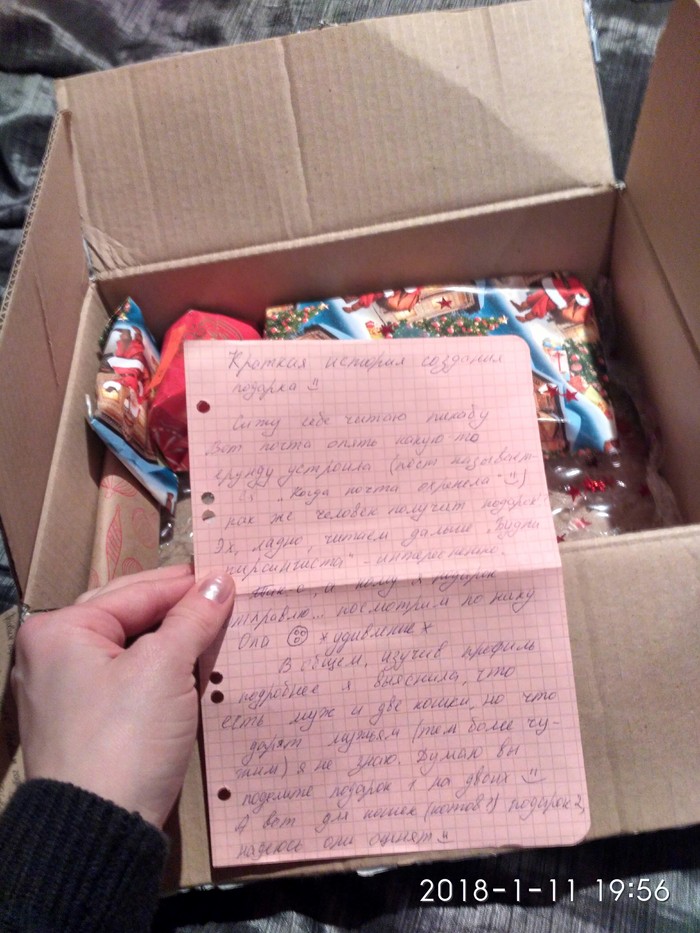 Краткая история создания
подарка
Сижу себе читаю пикабу
Вот почта опять какую-то
ерунду устроила (пост называет-
ся "Когда почта охренела")
как же человек получит подарок?
Эх, ладно, читаем дальше "Будни
пирсингиста" - интересненько.
Так с, и кому я подарок
отправлю... посмотрим по нику
Опа *удивление*
В общем, изучив профиль
подробнее я выяснила, что
есть муж и две кошки, но что
дарят мужьям (тем более чу-
жим) я не знаю. Думаю вы
поделите подарок 1 на двоих
А вот для кошек (котов?) подарок 2,
надеюсь они оценят
2018-1-11 19:56